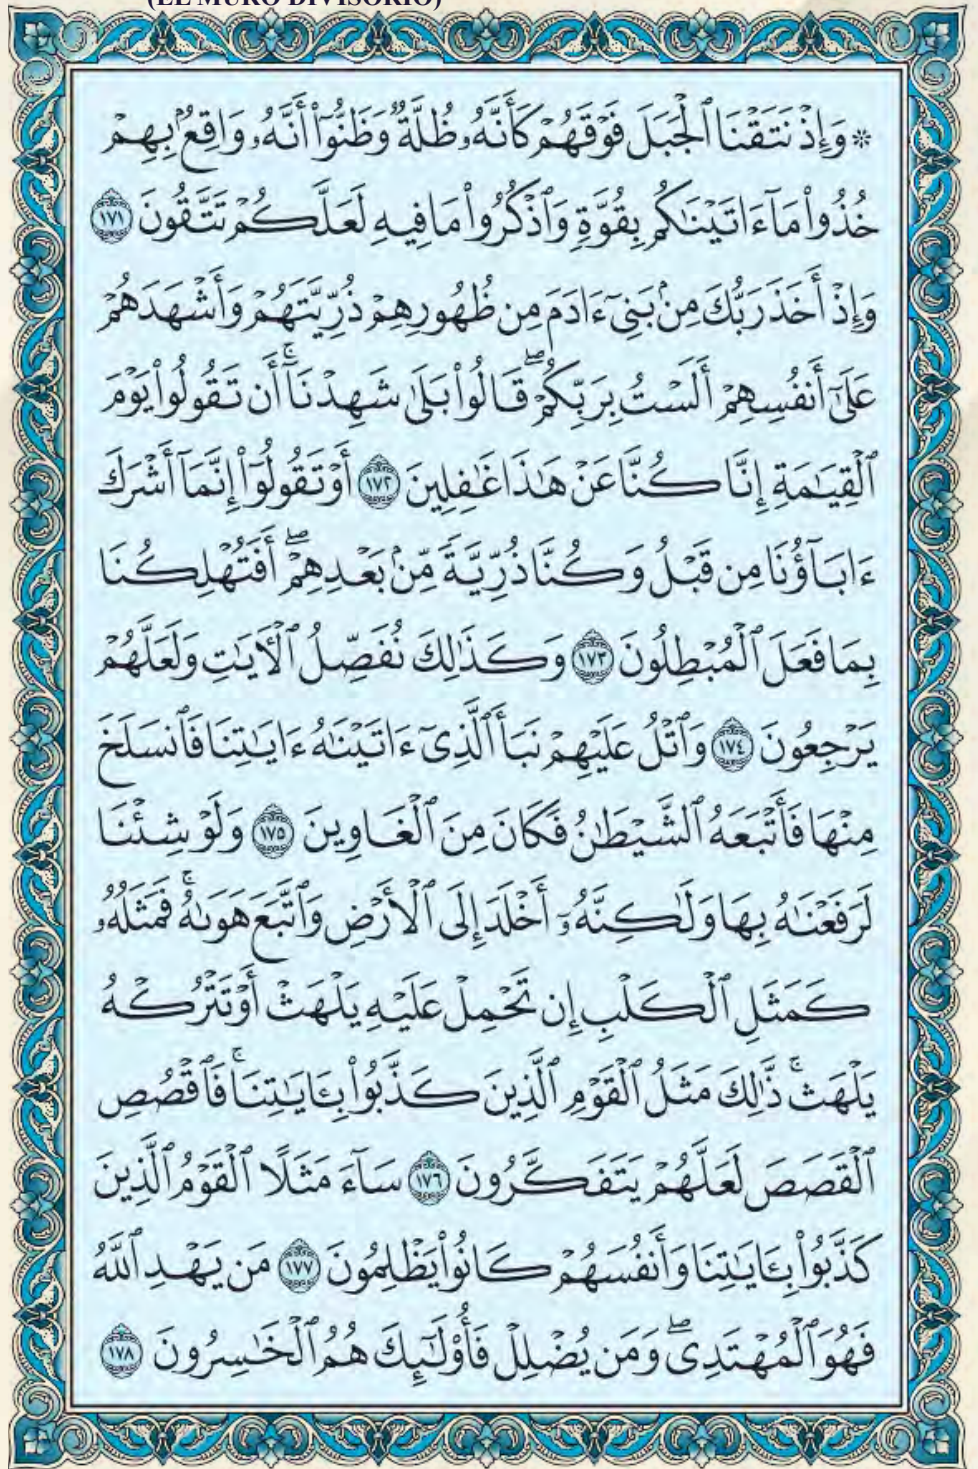 (EL MURO DIVISORIO)
۞ وَإِذْ نَتَقْنَا ٱلْجَبَلَ فَوْقَهُمْ كَأَنَّهُۥ ظُلَّةٌ وَظَنُّوٓا۟ أَنَّهُۥ وَاقِعٌۢ بِهِمْ
خُذُوا۟ مَآ ءَاتَيْنَٰكُم بِقُوَّةٍ وَٱذْكُرُوا۟ مَا فِيهِ لَعَلَّكُمْ تَتَّقُونَ ١٧١
وَإِذْ أَخَذَ رَبُّكَ مِنۢ بَنِىٓ ءَادَمَ مِن ظُهُورِهِمْ ذُرِّيَّتَهُمْ وَأَشْهَدَهُمْ
عَلَىٰٓ أَنفُسِهِمْ أَلَسْتُ بِرَبِّكُمْ ۖ قَالُوا۟ بَلَىٰ شَهِدْنَآ ۛ أَن تَقُولُوا۟ يَوْمَ
ٱلْقِيَٰمَةِ إِنَّا كُنَّا عَنْ هَٰذَا غَٰفِلِينَ ١٧٢ أَوْ تَقُولُوٓا۟ إِنَّمَآ أَشْرَكَ
ءَابَآؤُنَا مِن قَبْلُ وَكُنَّا ذُرِّيَّةً مِّنۢ بَعْدِهِمْ ۖ أَفَتُهْلِكُنَا
بِمَا فَعَلَ ٱلْمُبْطِلُونَ ١٧٣ وَكَذَٰلِكَ نُفَصِّلُ ٱلْءَايَٰتِ وَلَعَلَّهُمْ
يَرْجِعُونَ ١٧٤ وَٱتْلُ عَلَيْهِمْ نَبَأَ ٱلَّذِىٓ ءَاتَيْنَٰهُ ءَايَٰتِنَا فَٱنسَلَخَ
مِنْهَا فَأَتْبَعَهُ ٱلشَّيْطَٰنُ فَكَانَ مِنَ ٱلْغَاوِينَ ١٧٥ وَلَوْ شِئْنَا
لَرَفَعْنَٰهُ بِهَا وَلَٰكِنَّهُۥٓ أَخْلَدَ إِلَى ٱلْأَرْضِ وَٱتَّبَعَ هَوَىٰهُ ۚ فَمَثَلُهُۥ
كَمَثَلِ ٱلْكَلْبِ إِن تَحْمِلْ عَلَيْهِ يَلْهَثْ أَوْ تَتْرُكْهُ
يَلْهَث ۚ ذَّٰلِكَ مَثَلُ ٱلْقَوْمِ ٱلَّذِينَ كَذَّبُوا۟ بِـَٔايَٰتِنَا ۚ فَٱقْصُصِ
ٱلْقَصَصَ لَعَلَّهُمْ يَتَفَكَّرُونَ ١٧٦ سَآءَ مَثَلًا ٱلْقَوْمُ ٱلَّذِينَ
كَذَّبُوا۟ بِـَٔايَٰتِنَا وَأَنفُسَهُمْ كَانُوا۟ يَظْلِمُونَ ١٧٧ مَن يَهْدِ ٱللَّهُ
فَهُوَ ٱلْمُهْتَدِى ۖ وَمَن يُضْلِلْ فَأُو۟لَٰٓئِكَ هُمُ ٱلْخَٰسِرُونَ ١٧٨